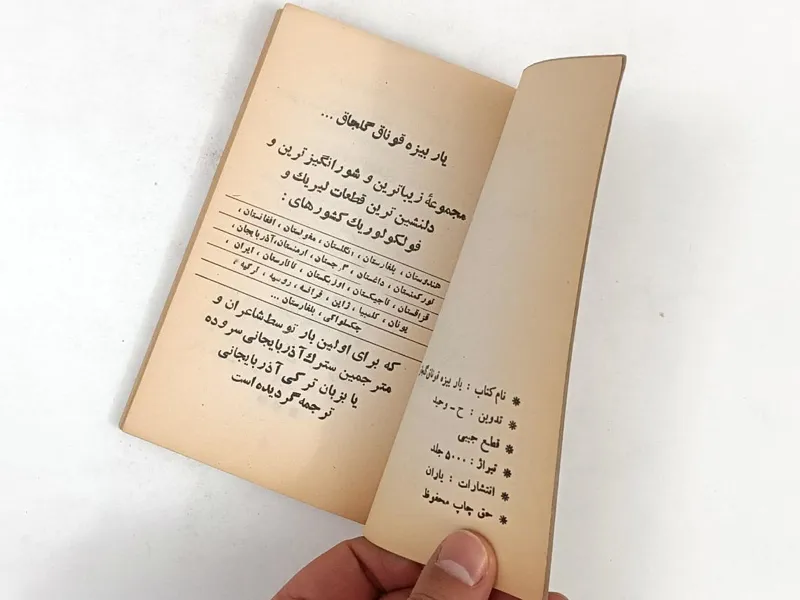 یار بیزه قوناق گلجاق ...
مجموعهٔ زیباترین و شورانگیزترین و
دلنشین ترین قطعات لیریك و
فولكولوریك كشورهای :
هندوستان ، بلغارستان ، انگلستان ، مغولستان ، افغانستان ،
توركمنستان ، داغستان ، گرجستان ، ارمنستان، آذربایجان ،
قزاقستان ، تاجیكستان ، اوزبكستان ، تاتارستان ، ایران
یونان ، كلمبیا ، ژاپن ، فرانسه ، روسیه ، تركیه
چكسلواكی ، بلغارستان ...
كه برای اولین بار توسط شاعران و
مترجمین سترك آذربایجانی سروده
یا بزبان تركی آذربایجانی
ترجمه گردیده است
* نام كتاب : یار بیزه قوناق
* تدوین : ح ـ وحید
* قطع جیبی
* تیراژ : ۵۰۰۰ جلد
* انتشارات : یاران
* حق چاپ محفوظ